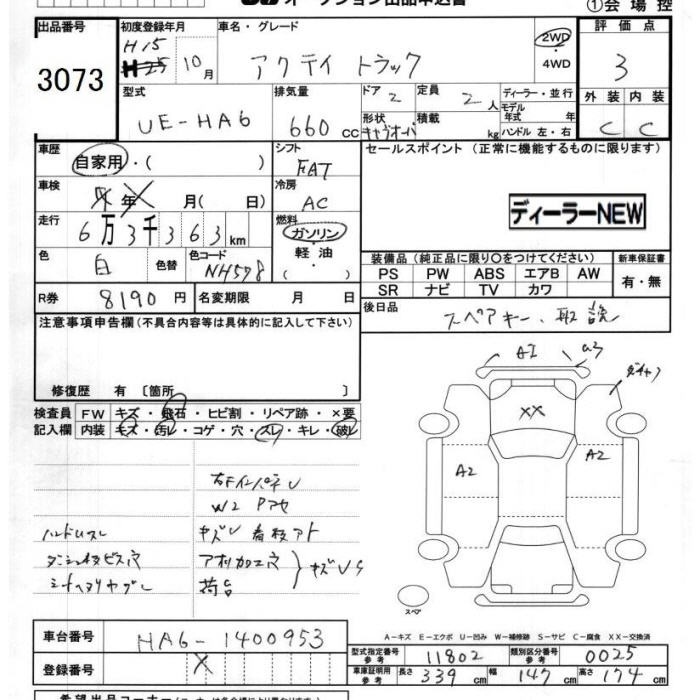 オークション出品申込書
①会場控
出品番号 初度登録年月 車名・グレード 評価点
3073
H15
H25 10月
アクティ トラック
2WD
・4WD
3
型式 排気量 ドア 定員 ディーラー・並行
外装 内装
UE-HA6 660cc 2 2人
モデル年式 年
形状 キャブオーバ 積載 kg ハンドル 左・右
C C
車歴 自家用・( ) シフト FAT
セールスポイント (正常に機能するものに限ります)
車検 年 月( 日) 冷房 AC
ディーラーNEW
走行 6万3千363km
燃料 ガソリン・軽油・( )
色 白 色替 色コード NH578
装備品 (純正品に限り○をつけてください) 新車保証書
PS PW ABS エアB AW
有・無
SR ナビ TV カワ
R券 8190円 名変期限 月 日
後日品 スペアキー、取説
注意事項申告欄(不具合内容等は具体的に記入して下さい)
修復歴 有 〔箇所 〕
検査員 FW キズ・飛石・ヒビ割・リペア跡・×要
記入欄 内装 キズ・汚レ・コゲ・穴・スレ・キレ・破レ
A1
XX
A2
A2
W2
ハンドルスレ
キズU 看板アト
荷台
キズU
スペア
A-キズ E-エクボ U-凹み W-補修跡 S-サビ C-腐食 XX-交換済
車台番号 HA6-1400953
型式指定番号 参考 11802 類別区分番号 参考 0025
登録番号 X
車庫証明用 参考 長さ 339cm 幅 147cm 高さ 174cm
希望出品コーナー